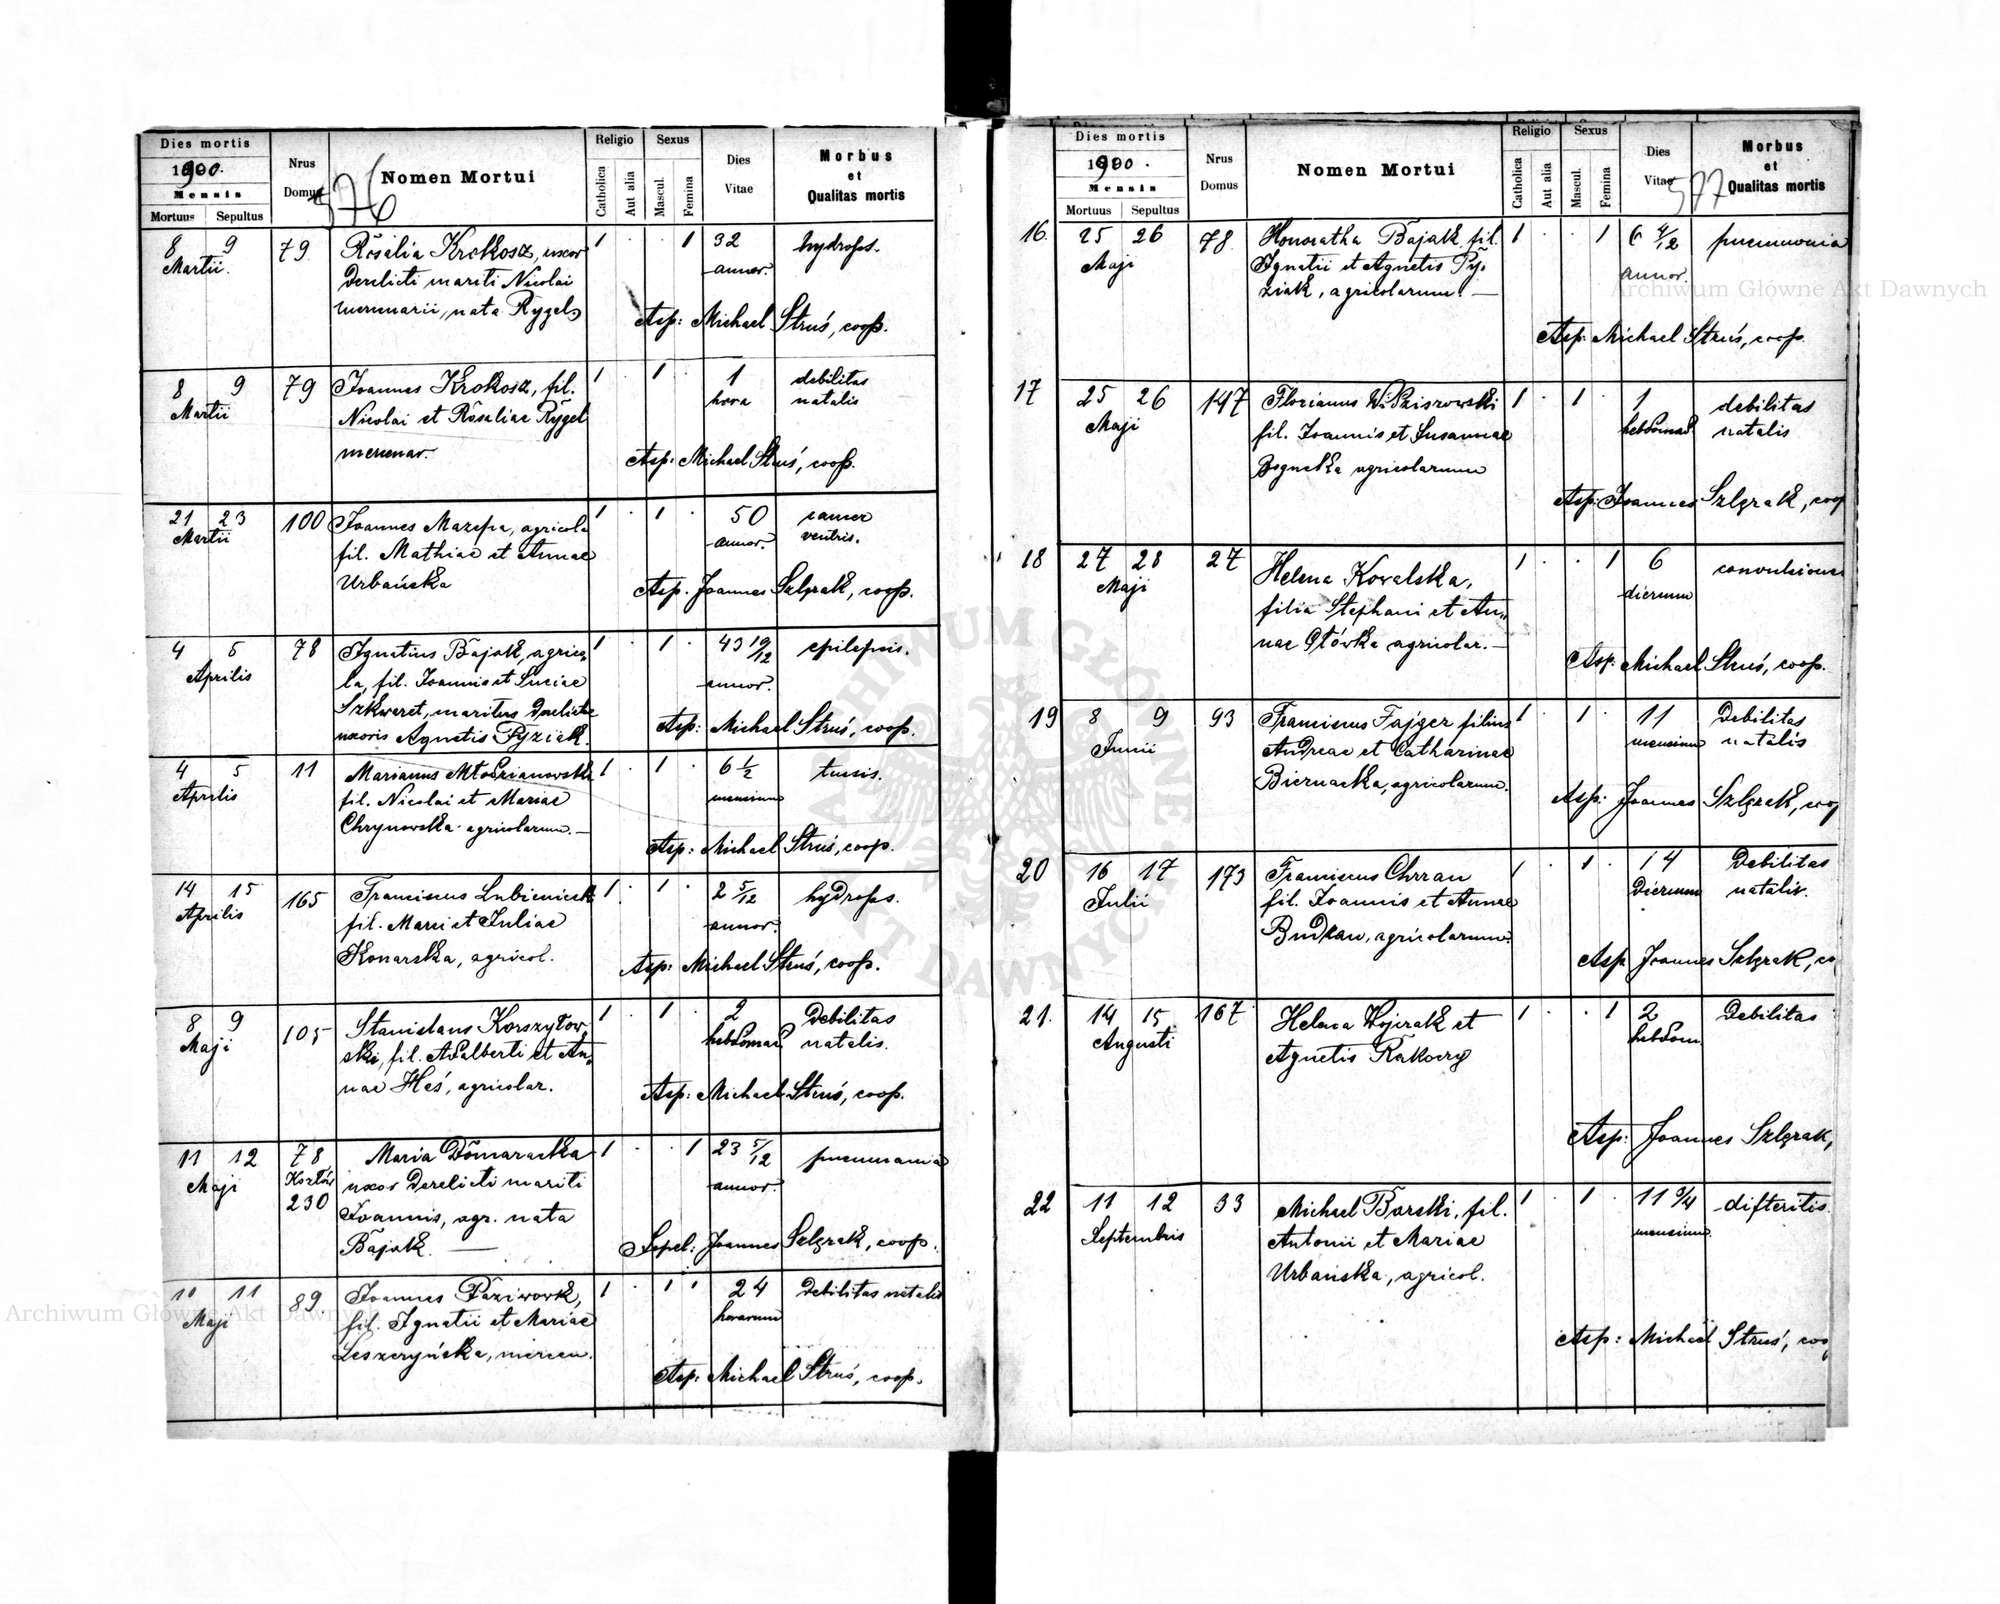 Dies mortis
1900.
Mensis
Mortuus Sepultus
Nrus
Domus
576
Nomen Mortui
Religio
Catholica
Aut alia
Sexus
Mascul.
Femina
Dies
Vitae
Morbus
et
Qualitas mortis
8 9
Martii.
79.
Rosalia Krokosz, uxor
derelicti mariti Nicolai
mercenarii, nata Rygel
1 . . 1
32
annor.
hydrops.
Asp: Michael Struś, coop.
8 9
Martii
79
Joannes Krokosz, fil.
Nicolai et Rosaliae Rygel
mercenar.
1 . 1 .
1
hora
debilitas
natalis
Asp: Michael Struś, coop.
21 23
Martii
100
Joannes Mazepa, agricola
fil. Mathiae et Annae
Urbańska
1 . 1 .
50
annor.
cancer
ventris.
Asp. Joannes Szlęzak, coop.
4 5
Aprilis
78
Ignatius Bajak, agrico„
la, fil. Joannis et Luciae
Szkwaret, maritus derelictae
uxoris Agnetis Pyziak.
1 . 1 .
43 10/12
annor.
epilepsis.
Asp: Michael Struś, coop.
4 5
Aprilis
11
Marianus Młodzianowski
fil. Nicolai et Mariae
Chrynowska agricolarum. —
1 . 1 .
6 1/2
mensium
tussis.
Asp: Michael Struś, coop.
14 15
Aprilis
165
Franciscus Lubieniecki
fil. Marci et Juliae
Konarska, agricol.
1 . 1 .
2 5/12
annor.
hydrops.
Asp: Michael Struś, coop.
8 9
Maji
105
Stanislaus Korszyłow„
ski, fil. Adalberti et An„
nae Heś, agricolar.
1 . 1 .
2
hebdomad.
Debilitas
natalis.
Asp: Michael Struś, coop.
11 12
Maji
78
230
Maria Domaracka
uxor derelicti mariti
Joannis, agr. nata
Bajak. —
1 . . 1
23 5/12
annor.
pneumania
Sepel: Joannes Szlęzak, coop.
10 11
Maji
89.
Joannes Paziwowk,
fil. Ignatii et Mariae
Leszczyńska, mercen.
1 . 1 .
24
horarum
Debilitas natalis
Asp: Michael Struś, coop.
Dies mortis
1900.
Mensis
Mortuus Sepultus
Nrus
Domus
Nomen Mortui
Religio
Catholica
Aut alia
Sexus
Mascul.
Femina
Dies
Vitae
577
Morbus
et
Qualitas mortis
16.
25 26
Maji
78.
Honoratha Bajak, fil.
Ignatii et Agnetis Py„
ziak, agricolarum. —
1 . . 1
6 4/12
annor.
pneumonia
Asp: Michael Struś, coop.
17
25 26
Maji
147
Florianus
fil. Joannis et Susannae
agricolarum
1 . 1 .
1
hebdomad
debilitas
natalis
Asp: Joannes Szlęzak, coop
18
27 28
Maji
27
Helena Kowalska,
filia Stephani et An„
nae Główka agricolar. —
1 . . 1
6
dierum
convulsiones
Asp: Michael Struś, coop.
19
8 9
Junii
93
Franciscus Fajger filius
Andreae et Catharinae
Biernacka, agricolarum.
1 . 1 .
11
mensium
Debilitas
natalis
Asp: Joannes Szlęzak, coop
20
16 17
Julii
173
Franciscus Chrzan
fil. Joannis et Annae
Budzan, agricolarum.
1 . 1 .
14
Dierum
Debilitas
natalis.
Asp Joannes Szlęzak, co
21.
14 15
Augusti
167
Helena Wojczak et
Agnetis Rakoczy
1 . . 1
2
hebdom
Debilitas
Asp: Joannes Szlęzak,
22
11 12
Septembris
33
Michael Borski, fil.
Antonii et Mariae
Urbańska, agricol.
1 . 1 .
11 3/4
mensium.
difteritis.
Asp: Michael Struś, coop
Archiwum Główne Akt Dawnych
Archiwum Główne Akt Dawnych
ARCHIWUM GŁÓWNE AKT DAWNYCH